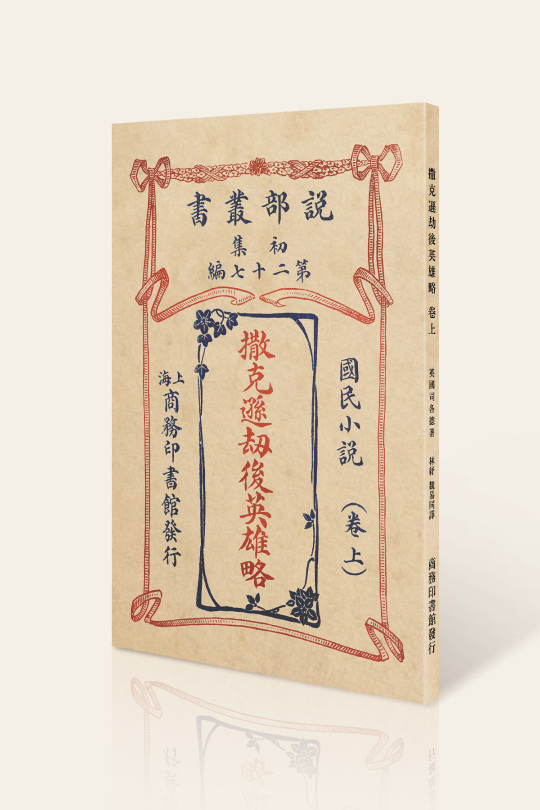 說部叢書
初集
第二十七編
國民小說（卷上）
撒克遜劫後英雄略
上海商務印書館發行
撒克遜劫後英雄略 卷上
英國司各德著
林紓 魏易同譯
商務印書館發行